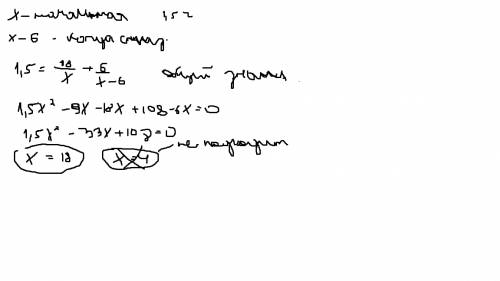 x - начальная 1,5 ч
x - 6 - когда снизил.
1,5 = 18/x + 6/x-6 общий знамен.
1,5x² - 9x - 18x + 108 - 6x = 0
1,5x² - 33x + 108 = 0
x = 18 x = 4 не подходит